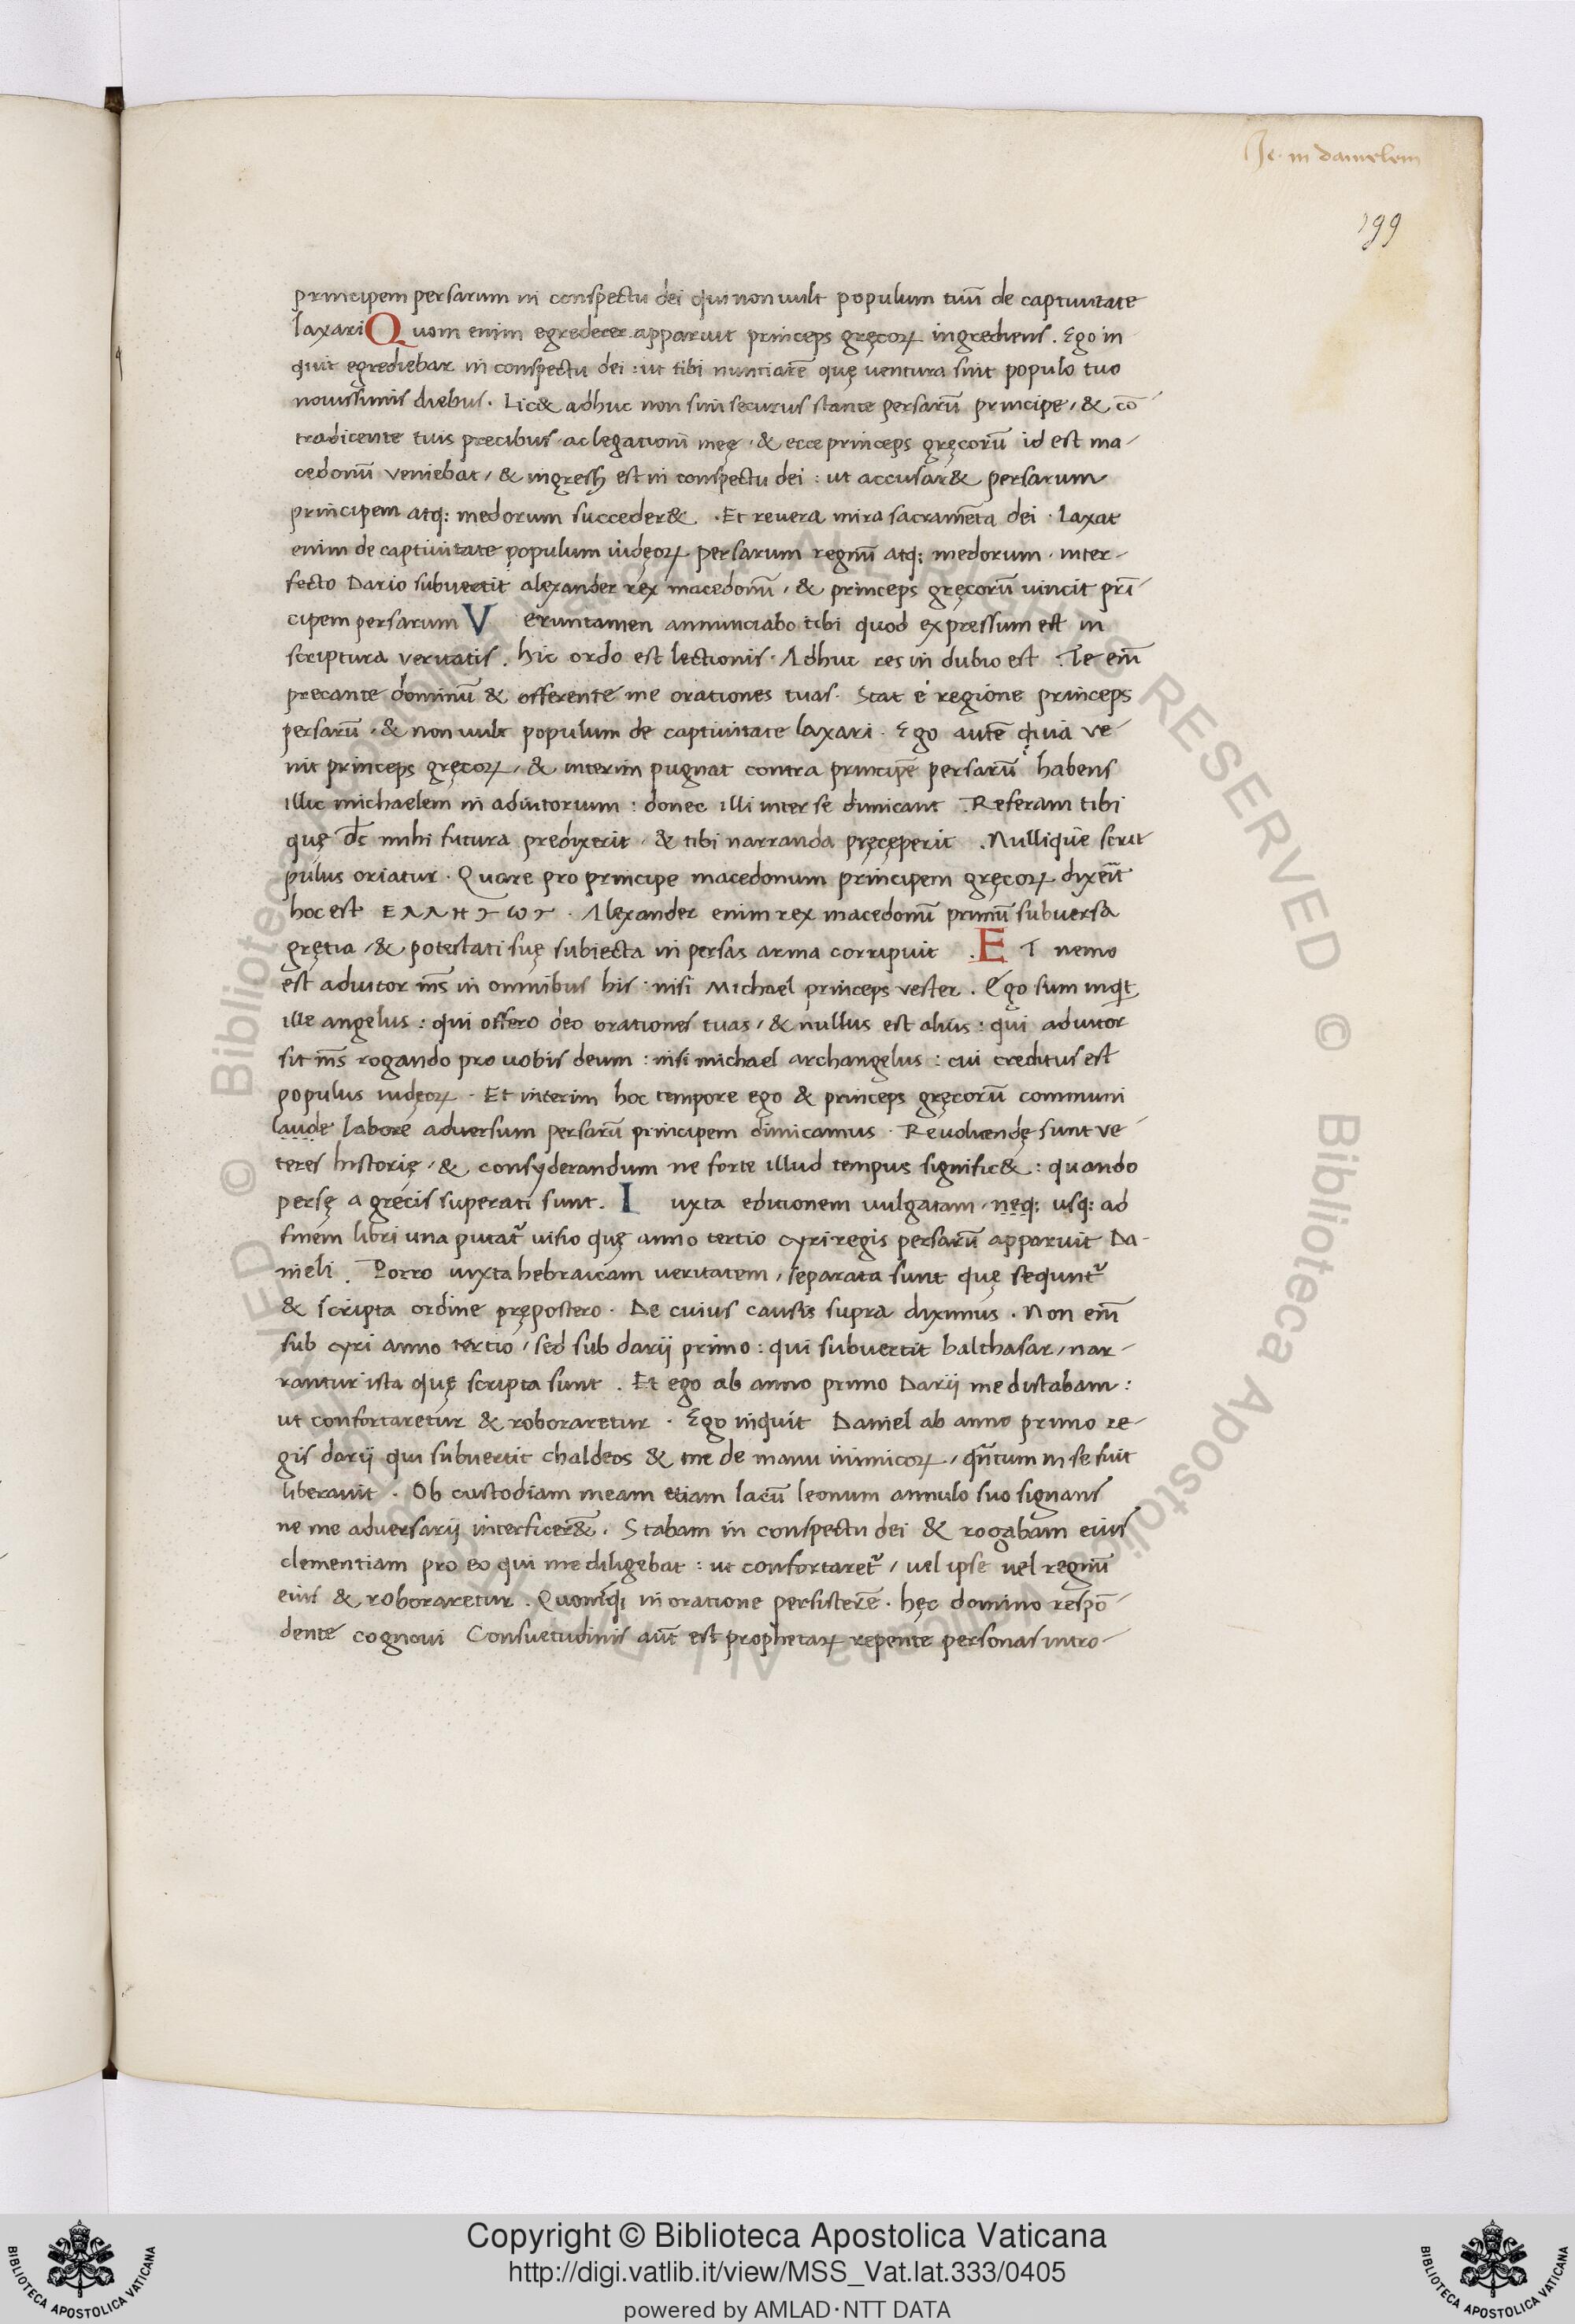 Je. in danielem
199
principem persarum in conspectu dei qui non uult populum tuū de captiuitate
laxari Quom enim egrederer apparuit princeps gręcoꝝ ingrediens . Ego in
quit egrediebar in conspectu dei : ut tibi nunciarē quę uentura sint populo tuo
nouissimis diebus . Lic& adhuc non sim securus stante persarū principe / & cō
tradicente tuis precibus ac legationi meę . & ecce princeps gręcorū id est ma-
cedonū veniebat / & ingressꝫ est in conspectu dei : ut accusar& persarum
principem atq: medorum succeder& . Et revera mira sacramēta dei . Laxat
enim de captiuitate populum iudęoꝝ persarum regnū atq; medorum . inter-
fecto Dario subvertit alexander rex macedonū / & princeps gręcorū uincit prī-
cipem persarum Veruntamen annunciabo tibi quod expressum est in
scriptura veritatis . hic ordo est lectionis . Adhuc res in dubio est . Te em̄
precante dominū & offerente me orationes tuas . Stat e regione princeps
persarū . & non uult populum de captiuitate laxari . Ego autē quia ve-
nit princeps gręcoꝝ / & interim pugnat contra principē persarū habens
illic michaelem in adiutorium : donec illi inter se dimicant . Referam tibi
quę ds̄ mihi futura predixerit . & tibi narranda pręcęperit . Nullique scru
pulus oriatur . Quare pro principe macedonum principem gręcoꝝ dixeīt
hoc est . Alexander enim rex macedonū primū subversa
gręcia / & potestati suę subiecta in persas arma corripuit . ET nemo
est adiutor ms̄ in omnibus his : nisi Michael princeps vester . Ego sum inqt
ille angelus : qui offero deo orationes tuas / & nullus est alius : qui adiutor
sit ms̄ rogando pro uobis deum : nisi michael archangelus : cui creditus est
populus iudęoꝝ . Et interim hoc tempore ego & princeps gręcorū communi
laude labore adversum persarū principem dimicamus . Revoluendę sunt ve-
teres historię / & consyderandum ne forte illud tempus signific& : quando
persę a grecis superati sunt . Iuxta editionem uulgatam . neq; usq: ad
finem libri una putat᷑ uisio quę anno tertio cyri regis persarū apparuit Da-
nieli . Porro iuxta hebraicam veritatem / separata sunt quę sequnt᷑
& scripta ordine prępostero . De cuius causis supra diximus . Non em̄
sub cyri anno tertio / sed sub darij primo : qui subvertit balthasar / nar-
rantur ista quę scripta sunt . Et ego ab anno primo Darij me distabam :
ut confortaretur & roboraretur . Ego inquit Daniel ab anno primo re-
gis darij qui subvertit chaldeos & me de manu inimicoꝝ / qn̄tum in se fuit
liberauit . Ob custodiam meam etiam lacū leonum annulo suo signans
ne me adversarij interficer&̄ . Stabam in conspectu dei & rogabam eius
clementiam pro eo qui me diligebat : ut confortaret᷑ / uel ipse uel regnū
eius & roboraretur . Quomq; in oratione persisterē . hęc domino respō-
dente cognoui Consuetudinis aūt est prophetaꝝ repente personas intro-
Copyright © Biblioteca Apostolica Vaticana
http://digi.vatlib.it/view/MSS_Vat.lat.333/0405
powered by AMLAD·NTT DATA